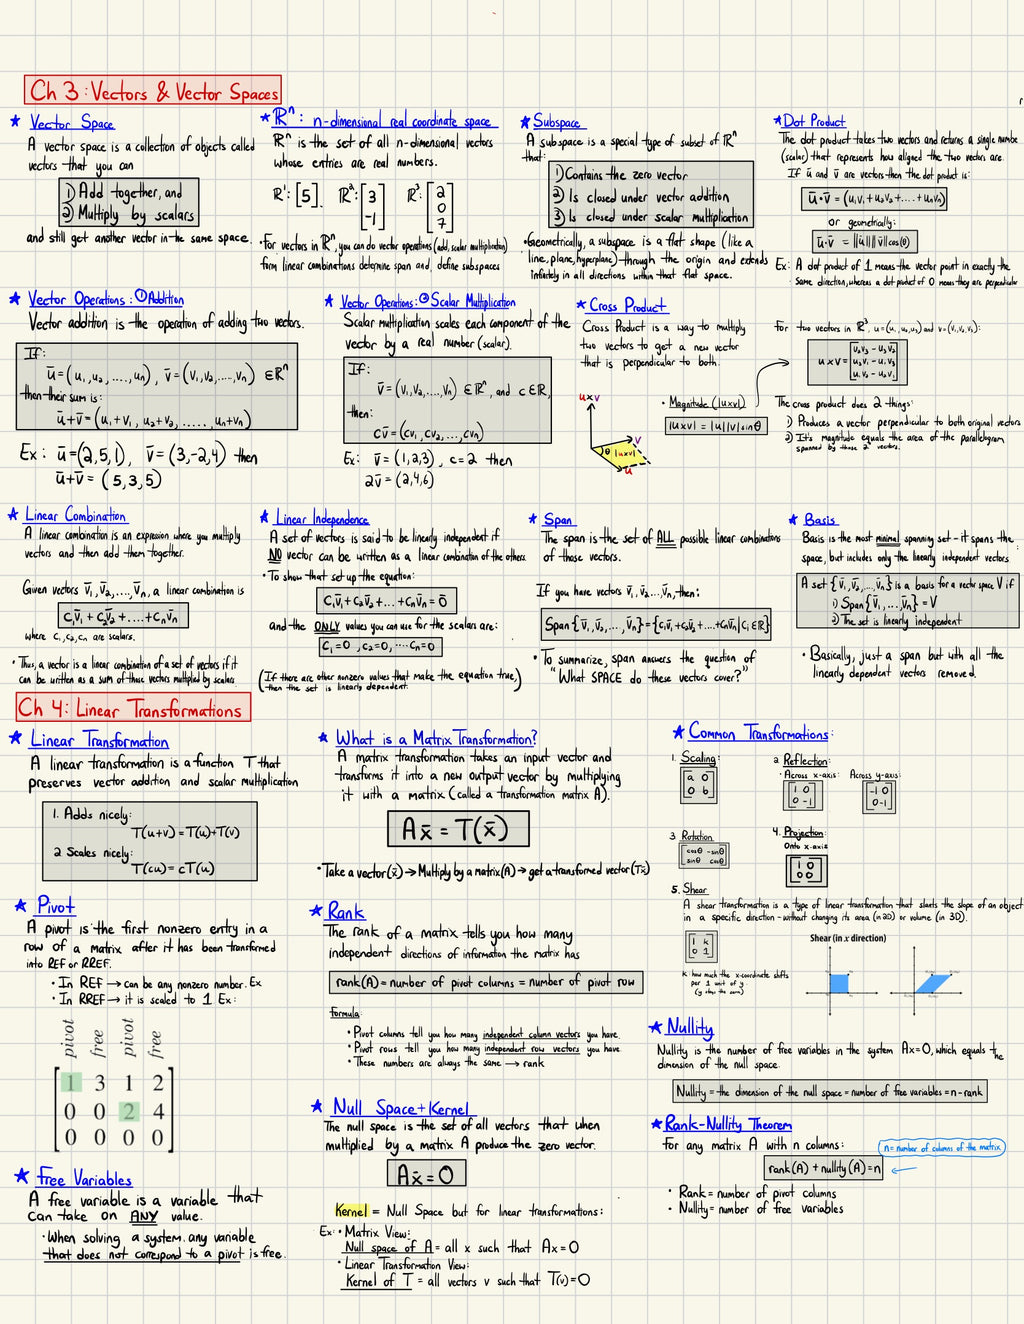 Ch 3: Vectors & Vector Spaces
★ Vector Space
A vector space is a collection of objects called
vectors that you can
1) Add together, and
2) Multiply by scalars
and still get another vector in the same space.
★ ℝⁿ: n-dimensional real coordinate space
ℝⁿ is the set of all n-dimensional vectors
whose entries are real numbers.
ℝ¹: [5]. ℝ²: [3 -1] ℝ³: [2 0 7]
• For vectors in ℝⁿ, you can do vector operations (add, scalar multiplication)
form linear combinations determine span and, define subspaces
★ Subspace
A subspace is a special type of subset of ℝⁿ
that:
1) Contains the zero vector
2) Is closed under vector addition
3) Is closed under scalar multiplication
• Geometrically, a subspace is a flat shape (like a
line, plane, hyperplane) through the origin and extends
infinitely in all directions within that flat space.
★ Dot Product
The dot product takes two vectors and returns a single number
(scalar) that represents how aligned the two vectors are.
If ū and v̄ are vectors then the dot product is:
ū·v̄ = (u₁v₁ + u₂v₂ + .... + uₙvₙ)
or geometrically:
ū·v̄ = ||ū|| ||v̄|| cos(θ)
Ex: A dot product of 1 means the vector point in exactly the
same direction, whereas a dot product of 0 means they are perpendicular
★ Vector Operations: ① Addition
Vector addition is the operation of adding two vectors.
If:
ū = (u₁, u₂, ...., uₙ), v̄ = (v₁, v₂, ...., vₙ) ∈ ℝⁿ
then their sum is:
ū+v̄ = (u₁+v₁, u₂+v₂, ....., uₙ+vₙ)
Ex: ū = (2,5,1), v̄ = (3,-2,4) then
ū+v̄ = (5,3,5)
★ Vector Operations: ② Scalar Multiplication
Scalar multiplication scales each component of the
vector by a real number (scalar).
If:
v̄ = (v₁, v₂, ...., vₙ) ∈ ℝⁿ, and c ∈ ℝ,
then:
cv̄ = (cv₁, cv₂, ..., cvₙ)
Ex: v̄ = (1,2,3), c = 2 then
2v̄ = (2,4,6)
★ Cross Product
Cross Product is a way to multiply
two vectors to get a new vector
that is perpendicular to both.
• Magnitude (|u×v|)
|u×v| = |u||v| sinθ
u×v
v
θ |u×v|
u
For two vectors in ℝ³, u = (u₁, u₂, u₃) and v = (v₁, v₂, v₃):
u×v = [u₂v₃ - u₃v₂
u₃v₁ - u₁v₃
u₁v₂ - u₂v₁]
The cross product does 2 things:
1) Produces a vector perpendicular to both original vectors
2) It's magnitude equals the area of the parallelogram
spanned by those 2 vectors.
★ Linear Combination
A linear combination is an expression where you multiply
vectors and then add them together.
Given vectors v̄₁, v̄₂, ...., v̄ₙ, a linear combination is
c₁v̄₁ + c₂v̄₂ + .... + cₙv̄ₙ
where c₁, c₂, cₙ are scalars.
• Thus, a vector is a linear combination of a set of vectors if it
can be written as a sum of those vectors multiplied by scalars
★ Linear Independence
A set of vectors is said to be linearly independent if
NO vector can be written as a linear combination of the others.
• To show that set up the equation:
c₁v̄₁ + c₂v̄₂ + ... + cₙv̄ₙ = 0̄
and the ONLY values you can use for the scalars are:
c₁=0, c₂=0, .... cₙ=0
(If there are other nonzero values that make the equation true,
then the set is linearly dependent.)
★ Span
The span is the set of ALL possible linear combinations
of those vectors.
If you have vectors v̄₁, v̄₂...v̄ₙ, then:
Span{v̄₁, v̄₂, ..., v̄ₙ} = {c₁v̄₁ + c₂v̄₂ + .... + cₙv̄ₙ | cᵢ ∈ ℝ}
• To summarize, span answers the question of
"What SPACE do these vectors cover?"
★ Basis
Basis is the most minimal spanning set - it spans the
space, but includes only the linearly independent vectors
A set {v̄₁, v̄₂, ..., v̄ₙ} is a basis for a vector space V if
1) Span{v̄₁, ..., v̄ₙ} = V
2) The set is linearly independent
• Basically, just a span but with all the
linearly dependent vectors removed.
Ch 4: Linear Transformations
★ Linear Transformation
A linear transformation is a function T that
preserves vector addition and scalar multiplication
1. Adds nicely:
T(u+v) = T(u)+T(v)
2 Scales nicely:
T(cu) = cT(u)
★ Pivot
A pivot is the first nonzero entry in a
row of a matrix after it has been transformed
into REF or RREF.
• In REF → can be any nonzero number. Ex
• In RREF → it is scaled to 1 Ex:
pivot free pivot free
1 3 1 2
0 0 2 4
0 0 0 0
★ Free Variables
A free variable is a variable that
can take on ANY value.
• When solving a system, any variable
that does not correspond to a pivot is free.
★ What is a Matrix Transformation?
A matrix transformation takes an input vector and
transforms it into a new output vector by multiplying
it with a matrix (called a transformation matrix A).
Ax̄ = T(x̄)
• Take a vector (x̄) → Multiply by a matrix (A) → get a transformed vector (Tx̄)
★ Rank
The rank of a matrix tells you how many
independent directions of information the matrix has
rank(A) = number of pivot columns = number of pivot row
formula:
• Pivot columns tell you how many independent column vectors you have.
• Pivot rows tell you how many independent row vectors you have
• These numbers are always the same → rank
★ Null Space + Kernel
The null space is the set of all vectors that when
multiplied by a matrix A produce the zero vector.
Ax̄ = 0
Kernel = Null Space but for linear transformations:
Ex: • Matrix View:
Null space of A = all x such that Ax = 0
• Linear Transformation View:
Kernel of T = all vectors v such that T(v) = 0
★ Common Transformations:
1. Scaling:
[a 0
0 b]
2 Reflection:
• Across x-axis: Across y-axis:
[1 0
0 -1]
[-1 0
0 -1]
3 Rotation
[cosθ -sinθ
sinθ cosθ]
4. Projection:
Onto x-axis
[1 0
0 0]
5. Shear
A shear transformation is a type of linear transformation that slants the slope of an object
in a specific direction - without changing its area (in 2D) or volume (in 3D).
[1 k
0 1]
k: how much the x-coordinate shifts
per 1 unit of y.
(y stays the same)
Shear (in x direction)
★ Nullity
Nullity is the number of free variables in the system Ax=0, which equals the
dimension of the null space.
Nullity = the dimension of the null space = number of free variables = n-rank
★ Rank-Nullity Theorem
For any matrix A with n columns:
n = number of columns of the matrix
rank(A) + nullity(A) = n
• Rank = number of pivot columns
• Nullity = number of free variables